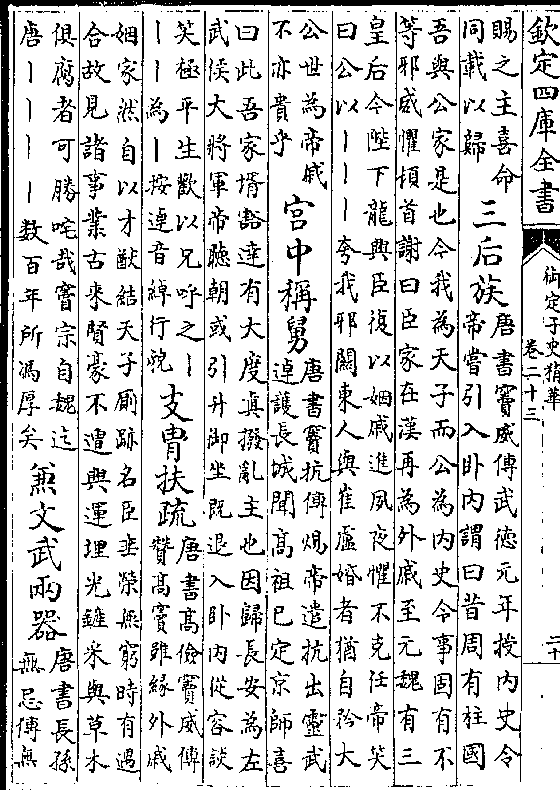 欽定四庫全書
御定子史精華
卷二十三
二十
賜之主喜命
同載以歸
三后族
唐書竇威傳武德元年授内史令
帝嘗引入卧内謂曰昔周有柱國
吾與公家是也今我為天子而公為内史令事固有不
等邪威懼頓首謝曰臣家在漢再為外戚至元魏有三
皇后今陛下龍興臣復以姻戚進夙夜懼不克任帝笑
曰公以丨丨丨夸我邪關東人與崔盧婚者猶自矜大
公世為帝戚
不亦貴乎
宮中稱舅
唐書竇抗傳煬帝遣抗出靈武
逴護長城聞高祖已定京師喜
曰此吾家壻豁達有大度真撥亂主也因歸長安為左
武侯大將軍帝聽朝或引升御坐既退入卧内從容談
笑極平生歡以兄呼之丨
丨丨為丨按逴音綽行貌
支胄扶疏
唐書高儉竇威傳
贊高竇雖緣外戚
姻家然自以才猷結天子廁跡名臣垂榮無窮時有遇
合故見諸事業古來賢豪不遭與運埋光鏟采與草木
俱腐者可勝咤哉竇宗自魏迄
唐丨丨丨丨數百年所馮厚矣
兼文武兩器
唐書長孫
無忌傳無